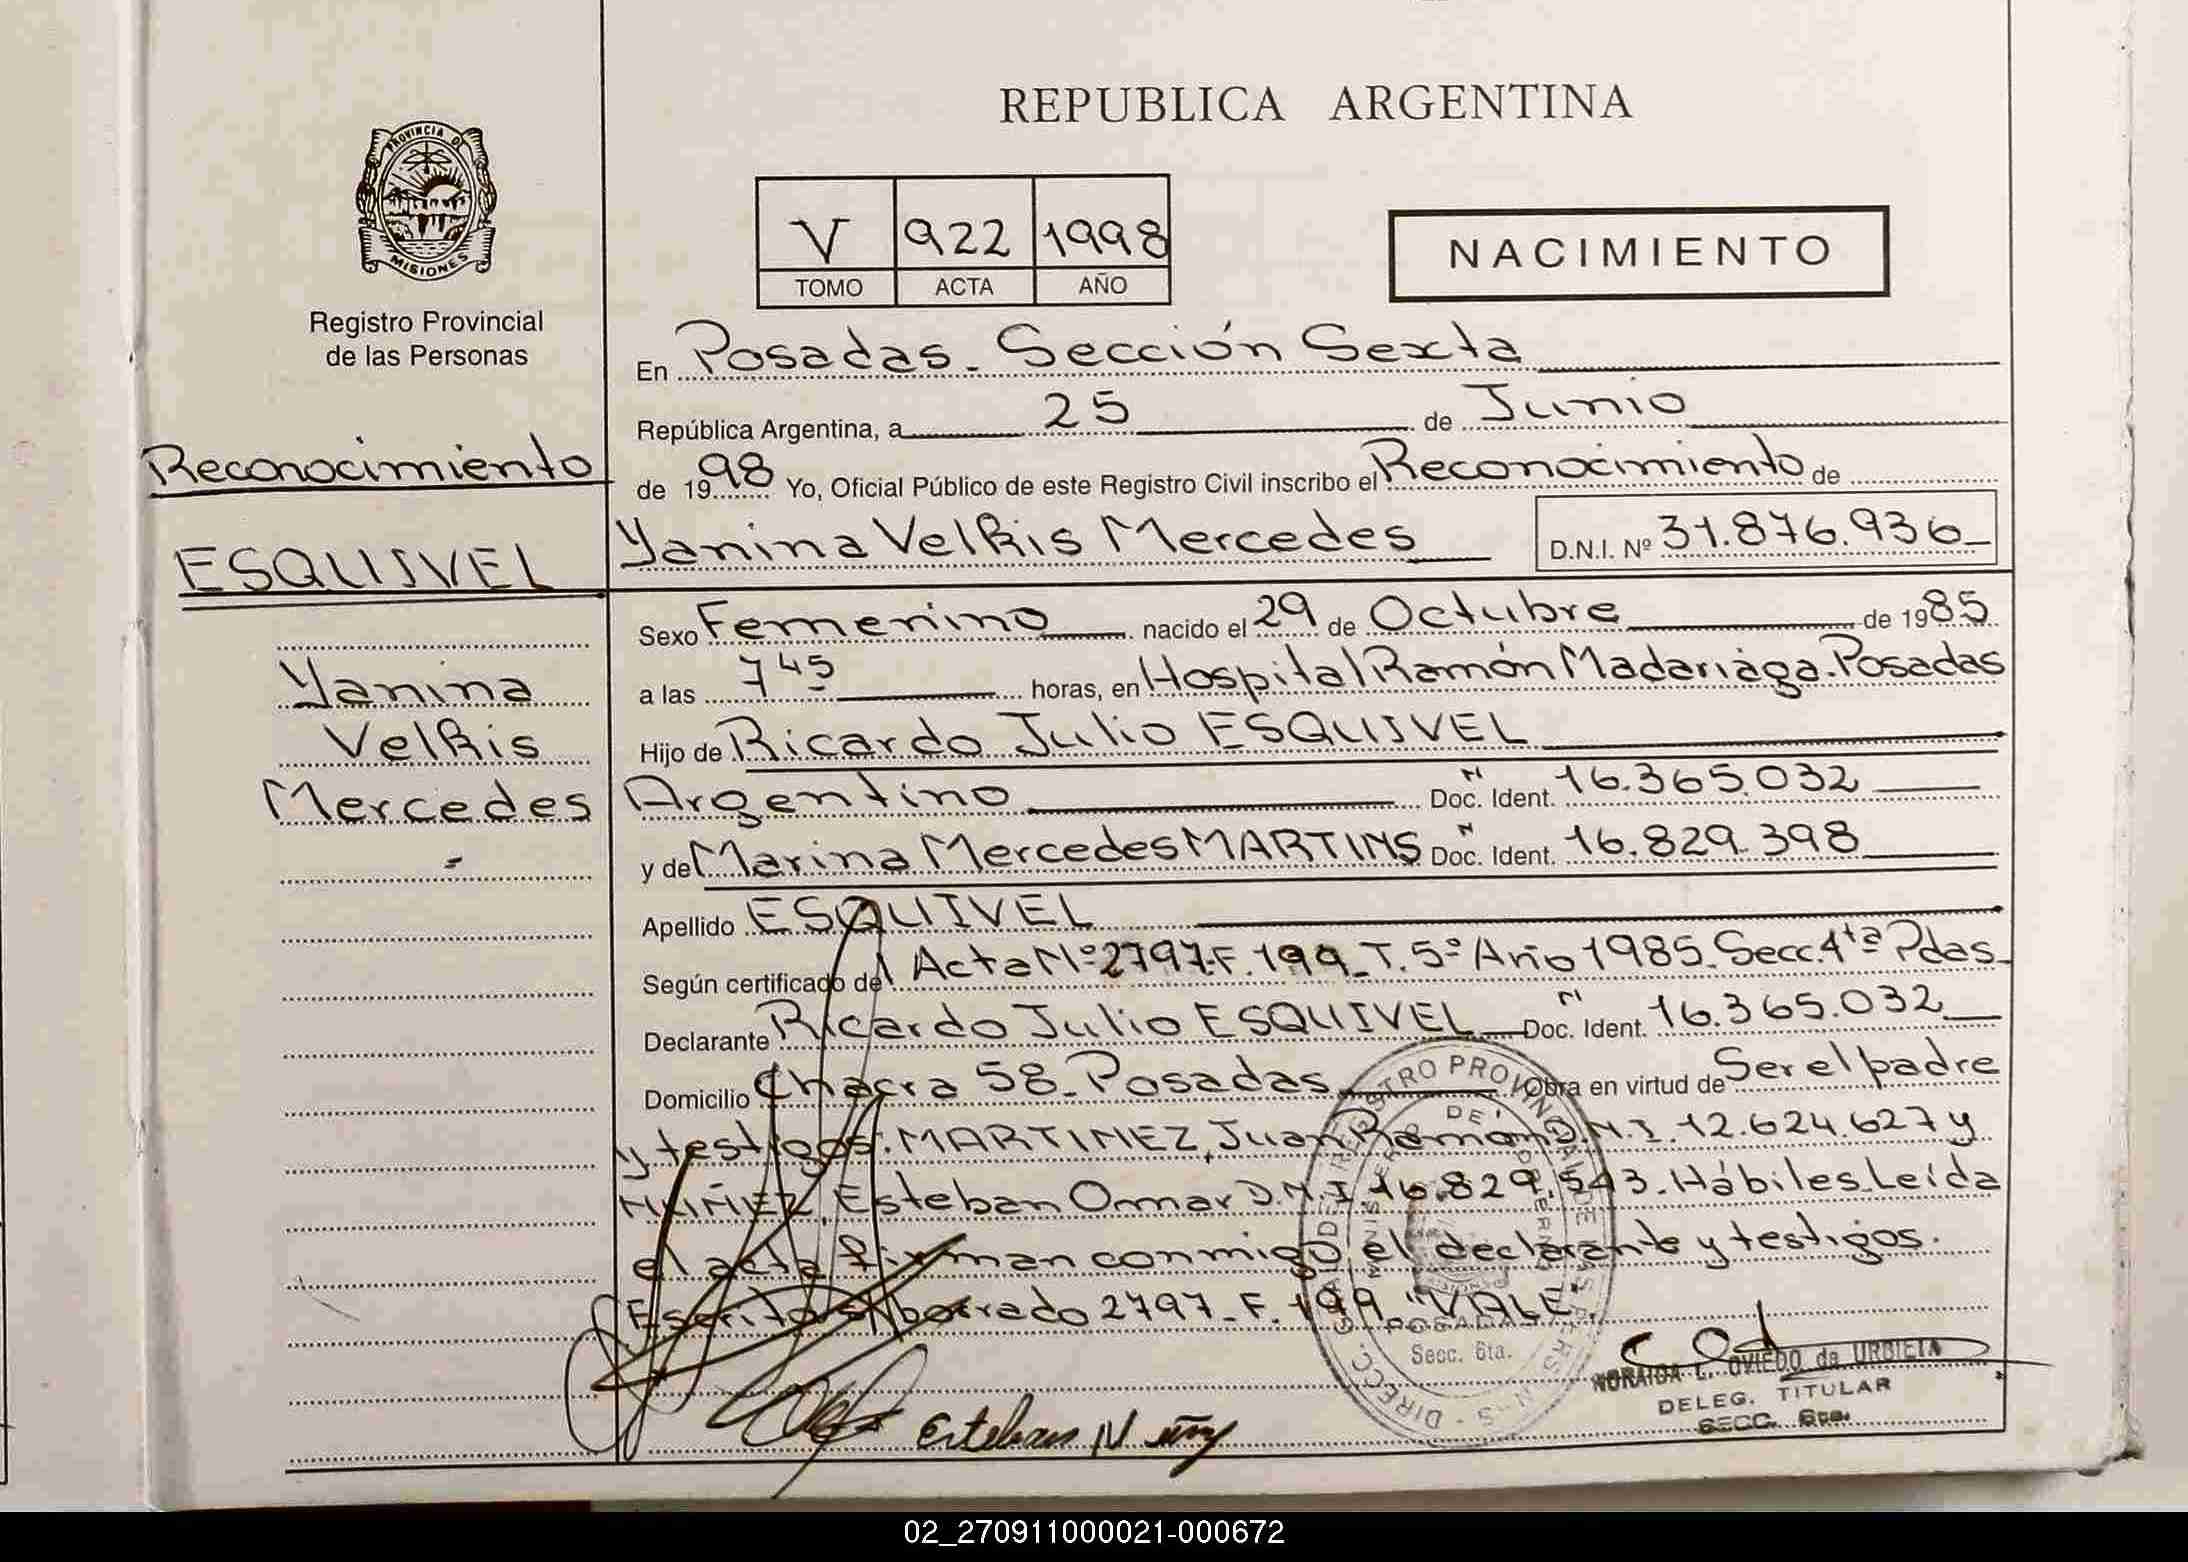 PROVINCIA DE
MISIONES
Registro Provincial
de las Personas
Reconocimiento
ESQUIVEL
Yanina
Velkis
Mercedes
REPUBLICA ARGENTINA
V 922 1998
TOMO ACTA AÑO
NACIMIENTO
En Posadas. Sección Sexta
República Argentina, a 25 de Junio
de 1998 Yo, Oficial Público de este Registro Civil inscribo el Reconocimiento de
Yanina Velkis Mercedes D.N.I. Nº 31.876.936
Sexo Femenino nacido el 29 de Octubre de 1985
a las 7 45 horas, en Hospital Ramón Madariaga. Posadas
Hijo de Ricardo Julio ESQUIVEL
Argentino Doc. Ident. 16.365.032
y de Marina Mercedes MARTINS Doc. Ident. 16.829.398
Apellido ESQUIVEL
Según certificado del Acta Nº 2797-F. 199_T. 5º Año 1985_Secc. 4ta Pdas_
Declarante Ricardo Julio ESQUIVEL Doc. Ident. 16.365.032
Domicilio Chacra 58_Posadas Obra en virtud de Ser el padre
y testigos: MARTINEZ, Juan Ramon D.N.I. 12.624.627 y
NUÑEZ, Esteban Omar D.N.I. 16.829.543. Hábiles Leída
el acta firman conmigo el declarante y testigos.
Escrito s/borrado 2797_F. 199 "VALE".
POSADAS
Secc. 6ta.
Esteban Nuñez
NORAIDA L. OVIEDO de URBIETA
DELEG. TITULAR
SECC. 6ta.
02_270911000021-000672